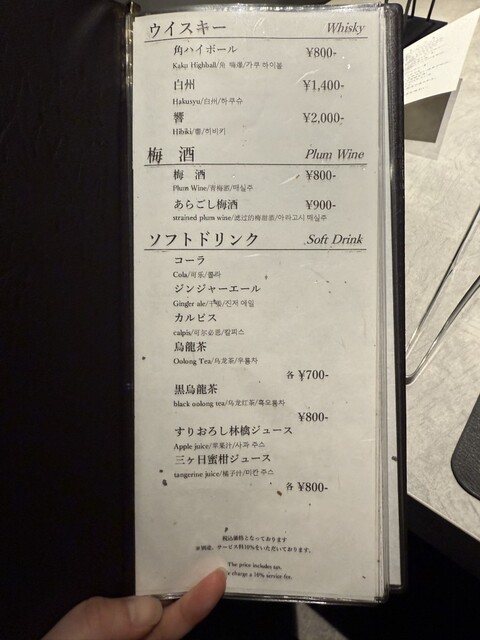 ウイスキー Whisky
角ハイボール ¥800-
Kaku Highball/角 嗨棒/가쿠 하이볼
白州 ¥1,400-
Hakusyu/白州/하쿠슈
響 ¥2,000-
Hibiki/響/히비키
梅 酒 Plum Wine
梅 酒 ¥800-
Plum Wine/青梅酒/매실주
あらごし梅酒 ¥900-
strained plum wine/滤过的梅甜酒/아라고시 매실주
ソフトドリンク Soft Drink
コーラ
Cola/可乐/콜라
ジンジャーエール
Ginger ale/干姜/진저 에일
カルピス
calpis/可尔必思/칼피스
烏龍茶
Oolong Tea/乌龙茶/우롱차
各 ¥700-
黒烏龍茶
black oolong tea/乌龙红茶/흑오룡차
¥800-
すりおろし林檎ジュース
Apple juice/苹果汁/사과 주스
三ヶ日蜜柑ジュース
tangerine juice/橘子汁/미칸 주스
各 ¥800-
税込価格となっております
※別途、サービス料10%をいただいております。
The price includes tax.
charge a 10% service fee.